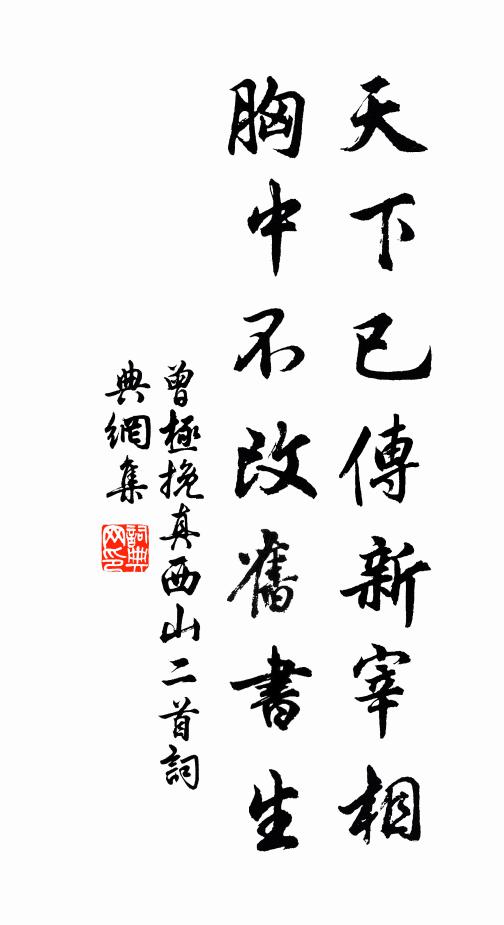 天下已傳新宰相
胸中不改舊書生
曾極挽真西山二首詞
典網集
詞典
网印